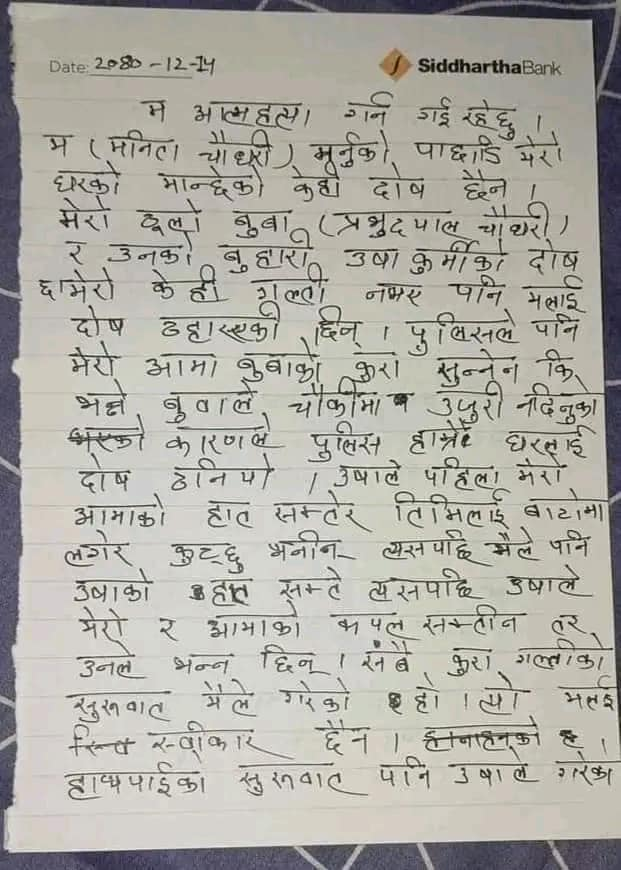 Date: 2080-12-14
SiddharthaBank
म आत्महत्या गर्न गई रहेछु ।
म (मनिता चौधरी) मर्नुको पाछाडि मेरो
घरको मान्छेको केही दोष छैन ।
मेरो ठूलो बुबा (प्रभुदयाल चौधरी)
र उनको बुहारी उषा कुर्मीको दोष
छ मेरो केही गल्ती नभए पनि मलाई
दोष ठहारएकी छिन् । पुलिसले पनि
मेरो आमा बुबाको कुरा सुन्नेन कि
भन्ने बुवाले चौकीमा उजुरी नदिनुको
कारणले पुलिस हाम्रै घरलाई
दोष ठानियो । उषाले पहिला मेरो
आमाको हात समतेर तिमिलाई बाटोमा
लगेर कुट्छु भनीन् त्यसपछि मैले पनि
उषाको हात समते त्यसपछि उषाले
मेरो र आमाको कपल समतीन तर
उनले भन्न छिन् । सबै कुरा गल्तीको
सुरुवात मैले गरेको हो । त्यो मलाई
स्वीकार छैन ।
हाथपाईको सुरुवात पनि उषाले गरेका